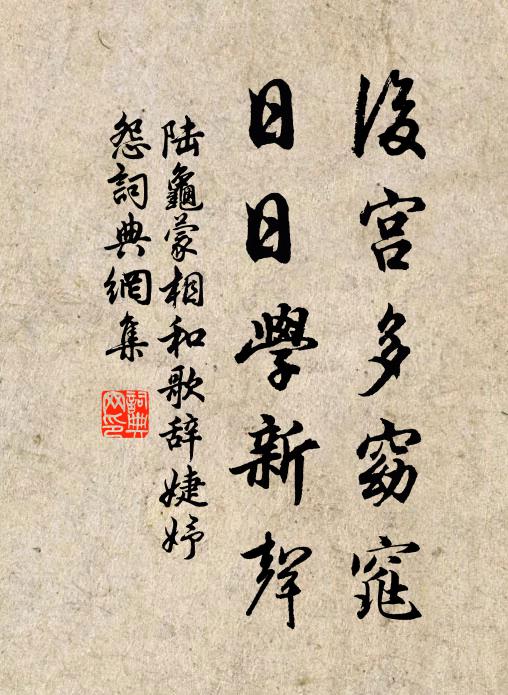 後宮多窈窕
日日學新聲
陸龜蒙相和歌辞婕妤
怨詞典網集
詞典
网印